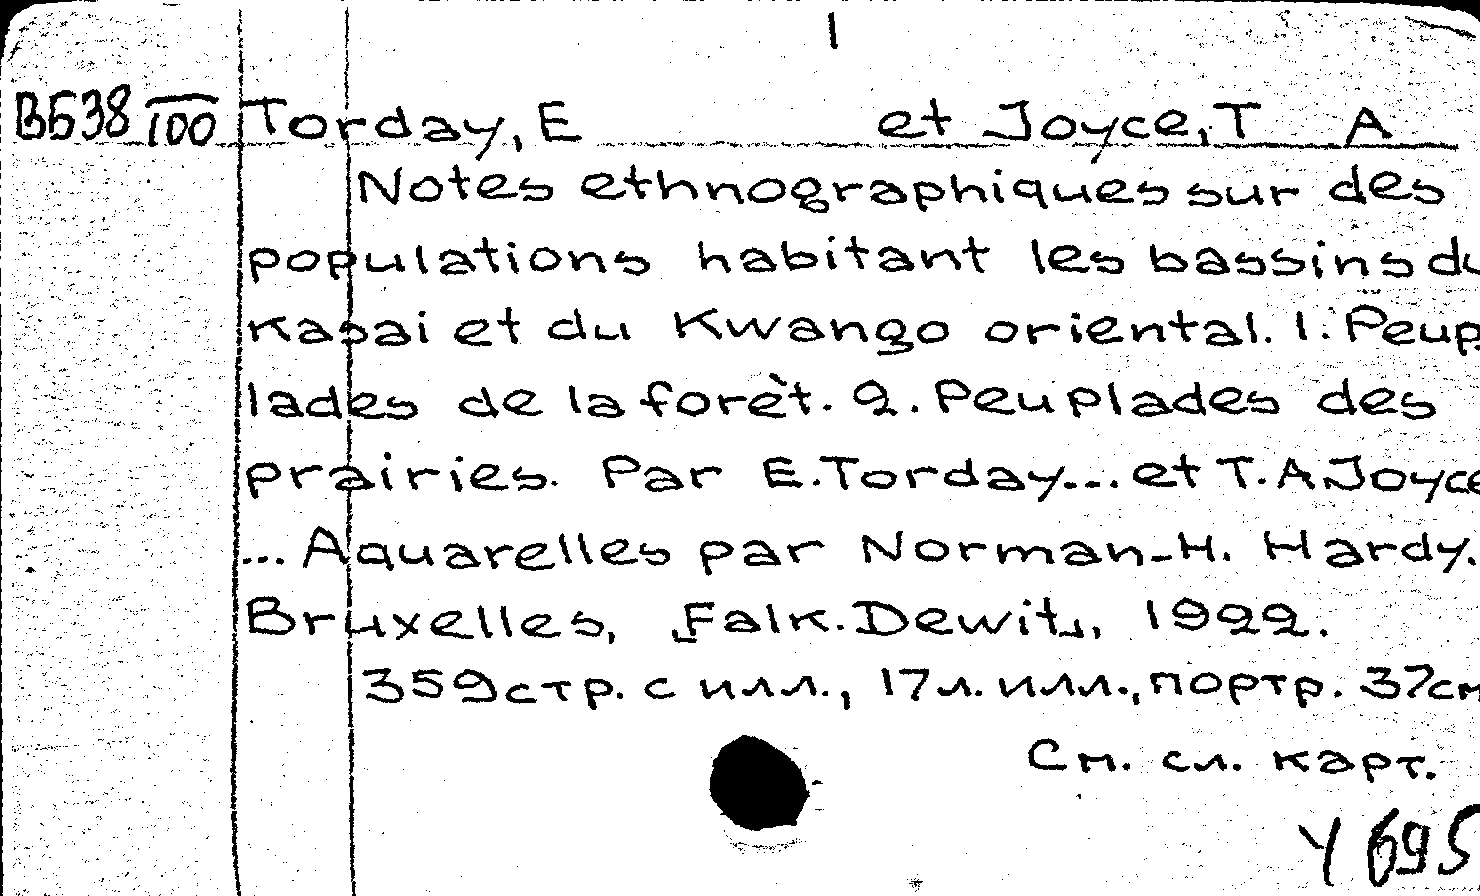 1
В538 100 Torday, E et Joyce, T A
Notes ethnographiques sur des
populations habitant les bassins du
Kasai et du Kwango oriental. 1. Peup
lades de la forèt. 2. Peuplades des
prairies. Par E. Torday... et T. A Joyce
... Aquarelles par Norman-H. Hardy.
Bruxelles, „Falk. Dewit„, 1922.
359 стр. с илл., 17 л. илл., портр. 37 см
См. сл. карт.
У 695